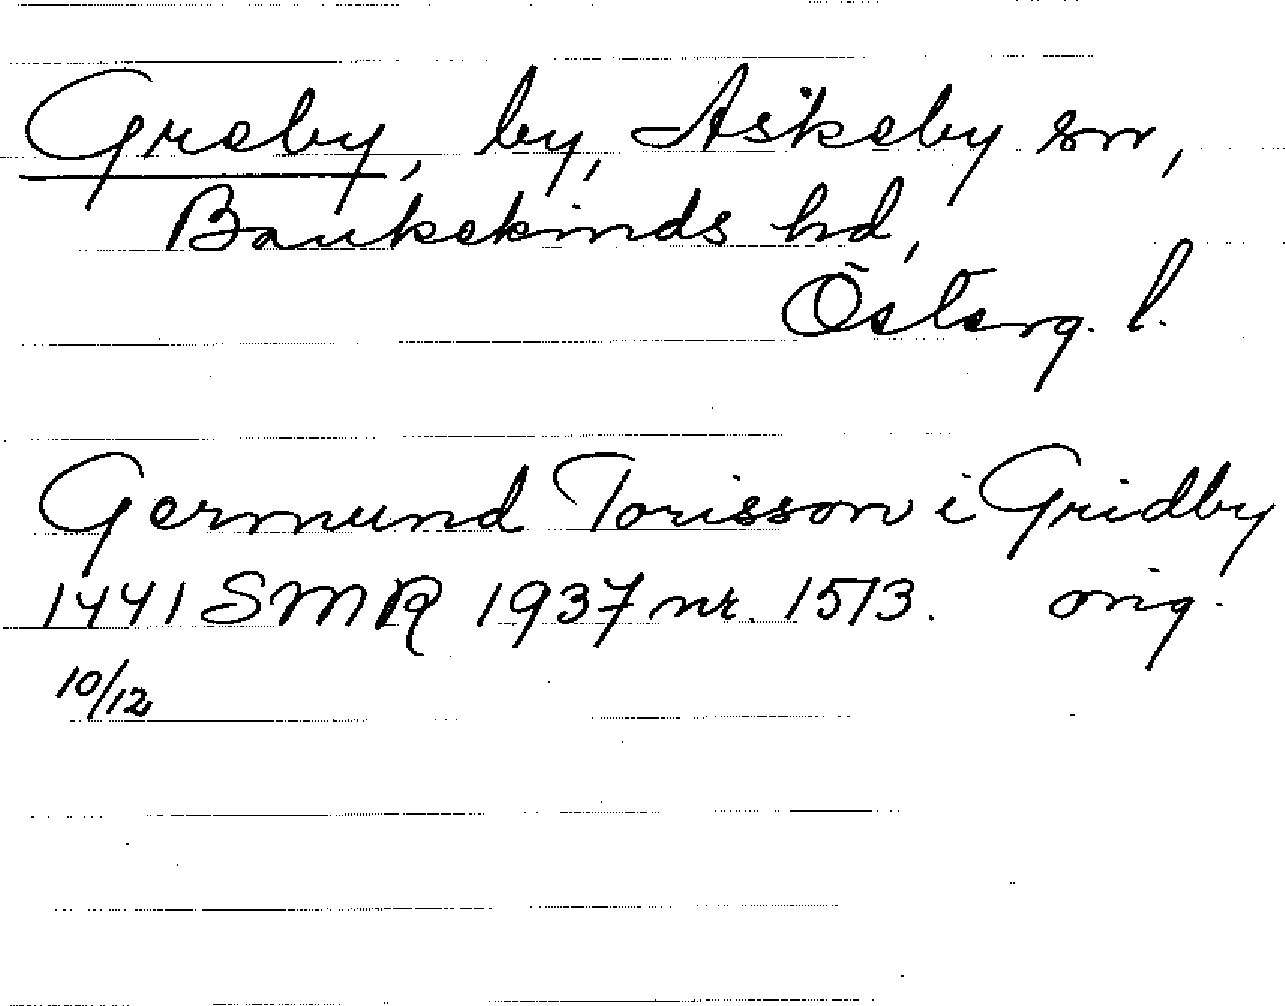 Greby, by, Askeby sn,
Bankekinds hd,
Österg. l.
Germund Torisson i Gridby
1441 SMR 1937 nr. 1513. orig.
10/12